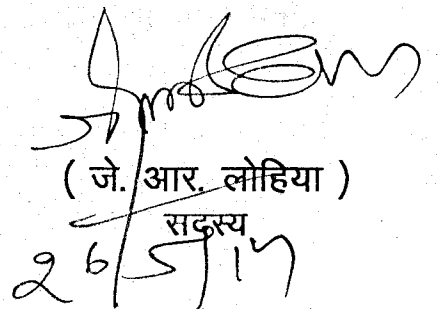 ( जे. आर. लोहिया )
सदस्य
26/5/17